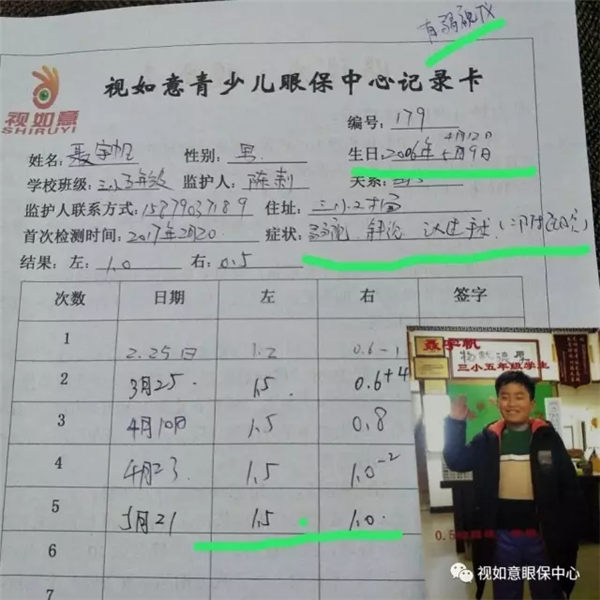 有弱视TX
视如意
SHIRUYI
视如意青少儿眼保中心记录卡
编号: 179
姓名: 聂宇帆 性别: 男 生日: 2006年 4月12日 5月9日
学校班级: 三小五年级 监护人: 陈莉 关系:
监护人联系方式: 15879037189 住址: 三小
首次检测时间: 2017年2月20 症状: 弱视
结果: 左: 1.0 右: 0.5
次数 日期 左 右 签字
1 2.25日 1.2 0.6-1
2 3月25. 1.5. 0.6+4
3 4月10日 1.5 0.8
4 4月23 1.5 1.0-2
5 5月21 1.5. 1.0.
6
7
聂宇帆
三小五年级学生
视如意眼保中心